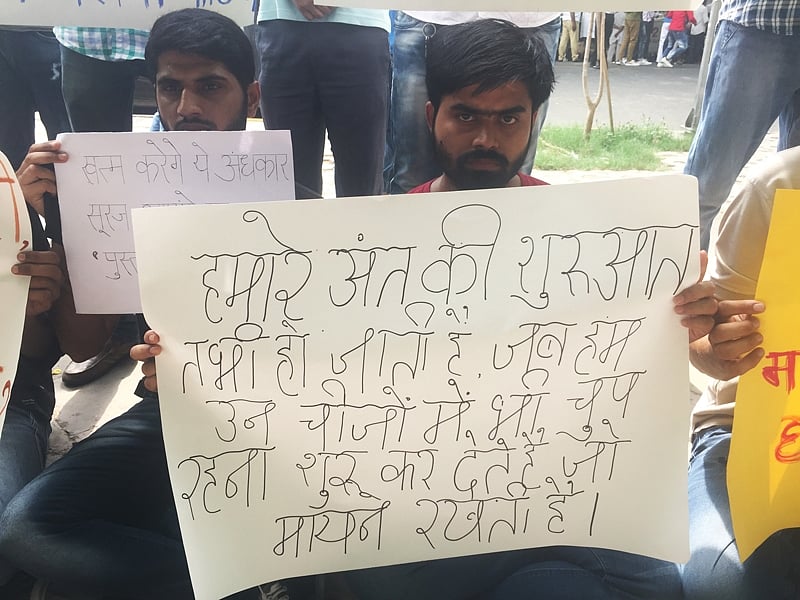 खत्म करेंगे ये अंधकार
सूरज
पुस्त
हमारे अंत की शुरुआत
तभी हो जाती है, जब हम
उन चीजों में भी चुप
रहना शुरू कर देते हैं जो
मायने रखती है।